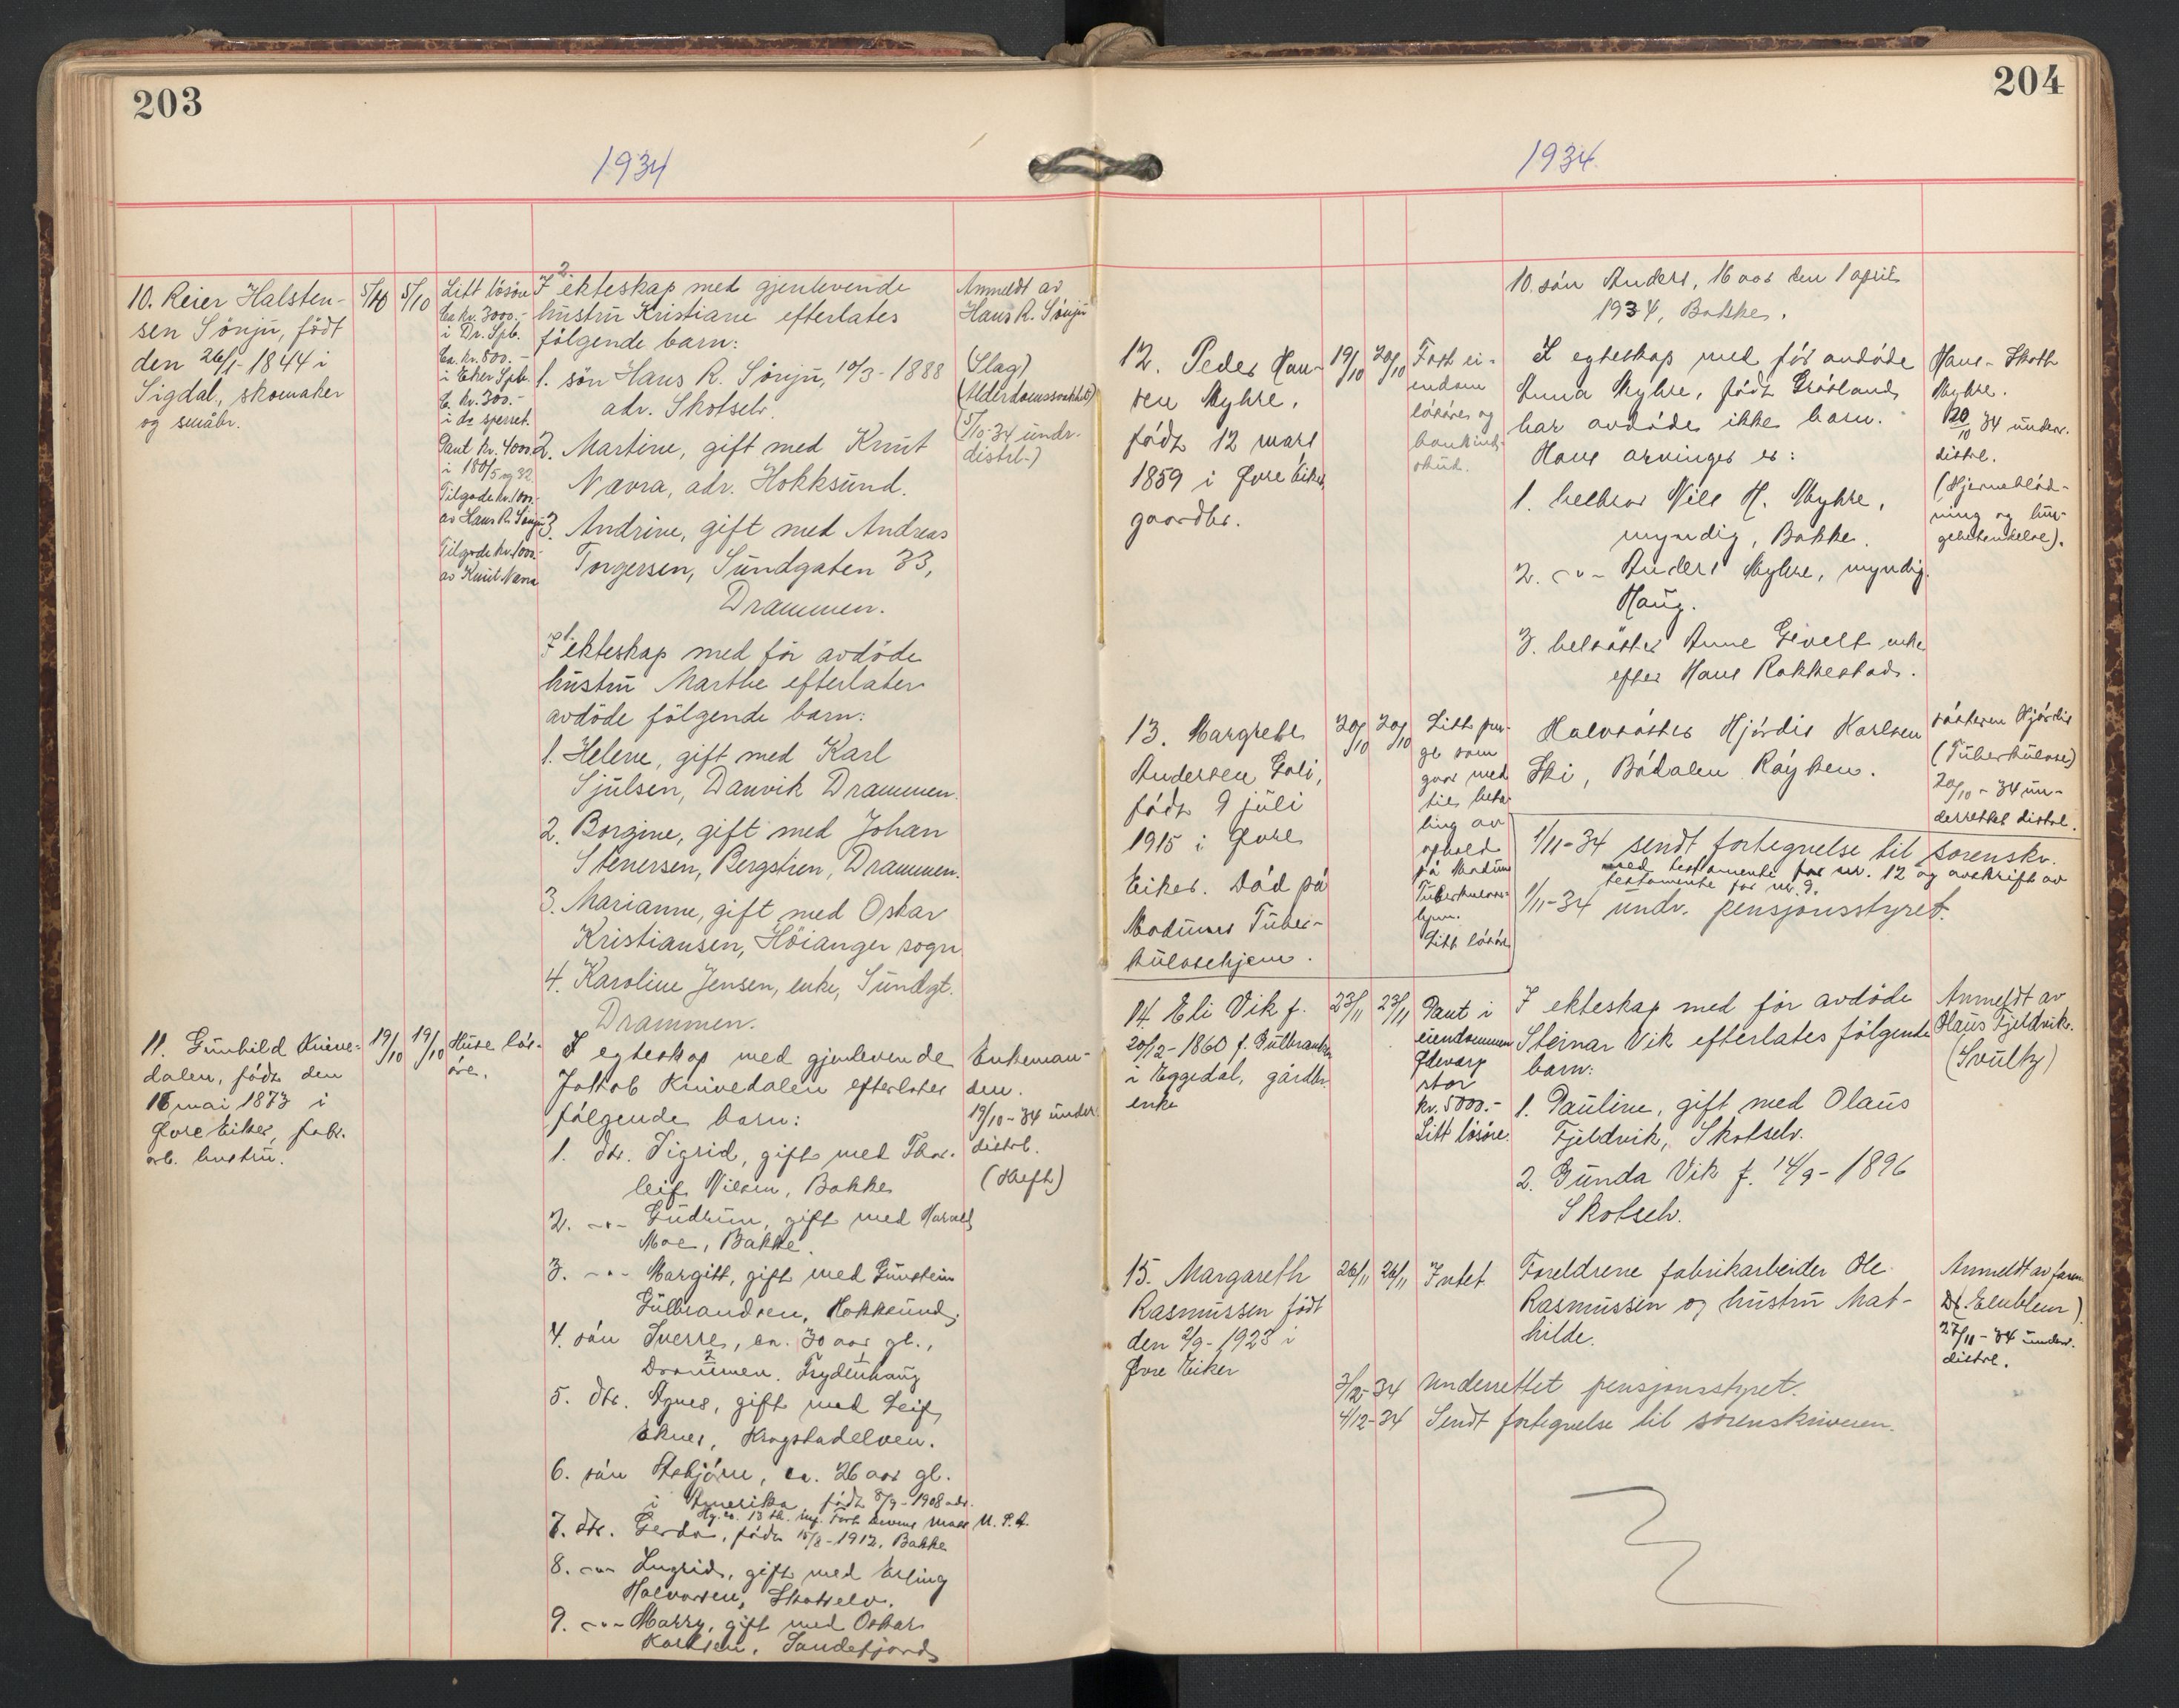 203
1934
10. Reier Halsten-
sen Sönju, födt
den 26/1-1844 i
Sigdal, skomaker
og småbr.
5/10
5/10
Litt lösöre
Ca. kr. 3000.-
i Dr. Spb.
Ca. kr. 800.-
i Eiker Spb.
C. kr. 300.-
i do sperret.
Pant kr. 4000
i 180/5 og 32
Tilgode kr. 1000.-
av Hans R. Sönju
Tilgode kr. 1000.-
av Knut Nævra
I 2. ekteskap med gjenlevende
hustru Kristiane efterlates
fölgende barn:
1. sön Hans R. Sönju, 10/3-1888
adr. Skotselv.
2. Martine, gift med Knut
Nævra, adr. Hokksund.
3. Andrine, gift med Andreas
Torgersen, Sundgaten 33,
Drammen.
I 1. ekteskap med för avdöde
hustru Marthe efterlater
avdöde fölgende barn:
1. Helene, gift med Karl
Sjulsen, Danvik Drammen.
2. Borgine, gift med Johan
Stenersen, Bergstien, Drammen.
3. Marianne, gift med Oskar
Kristiansen, Höianger sogn
4. Karoline Jensen, enke, Sundgt.
Drammen.
Anmeldt av
Hans R. Sönju
(Slag)
(Alderdomssvakhet)
5/10-34 undr.
distrl.)
11. Gunhild Knive-
dalen, födt den
16 mai 1873 i
Øvre Eiker, fabr.
arb. hustru.
19/10
19/10
Huse lös-
öre.
I egteskap med gjenlevende
Jakob Knivedalen efterlates
fölgende barn:
1. dtr. Sigrid, gift med Thor-
leif Nilsen, Bakke
2. -"- Gudrun, gift med Harald
Moe, Bakke.
3. -"- Margitt, gift med Gunstein
Gulbrandsen, Hokksund.
4. sön Sverre, ca. 30 aar gl.,
Drammen. Frydenhaug
5. dtr. Agnes, gift med Leif
Eknes, Krogstadelven.
6. sön Asbjörn, ca. 26 aar gl.
i Amerika, födt 8/9-1908 adr.
Hq. co. 13 th. Inf. Fort Devens Mass. U.S.A.
7. dtr. Gerda, födt 15/8-1912, Bakke
8. -"- Ingrid, gift med Erling
Halvorsen, Skotselv.
9. -"- Marry, gift med Oskar
Karlsen, Sandefjord
Enkeman-
den.
19/10-34 under.
distrl.
(Kreft)
204
1934.
10. sön Anders, 16 aar den 1 april
1934, Bakke.
12. Peder Han-
sen Myhre,
födt 12 mars
1859 i Øvre Eiker
gaardbr.
19/10
20/10
Fast ei-
endom
lösöre og
bankind-
skud.
I egteskap med för avdöde
Anna Myhre, födt Gråsland
har avdöde ikke barn.
Hans arvinger er:
1. helbror Nils H. Myhre,
myndig, Bakke.
2. -"- Anders Myhre, myndig.
Haug.
3. helsöster Anne Sivelt enke
efter Hans Rakkestad.
Hans-Skotte
Myhre.
20/10 34 under.
distrl.
(Hjerneblöd-
ning og lun-
gebetendelse).
13. Margrethe
Andersen Goli,
födt 9 juli
1915 i Øvre
Eiker. Död på
Modums Tuber-
kulosehjem.
20/10
20/10
Litt pen-
ge som
gaar med
til beta-
ling av
ophold
på Modum
Tuberkulose-
hjem.
Litt lösöre
Halvsöster Hjördis Karlsen
Ski, Bödalen Röyken.
söstren Hjördis
(Tuberkulose)
20/10-34 un-
derrettet distrl.
1/11-34 sendt fortegnelse til sorenskr.
med testamente for nr. 12 og avskrift av
testamente for nr. 9.
1/11-34 undr. pensjonsstyret.
14. Eli Vik f.
20/12-1860 f. Gulbrandsen
i Eggedal, gårdbr.
enke
23/11
23/11
Pant i
eiendommen
Ødevarp
stor
kr. 5000.-
Litt lösöre.
I ekteskap med för avdöde
Steinar Vik efterlates fölgende
barn:
1. Pauline, gift med Olaus
Fjeldvik, Skotselv.
2. Gunda Vik f. 14/9-1896
Skotselv.
Anmeldt av
Olaus Fjeldvik.
(Svulty)
15. Margareth
Rasmussen födt
den 2/9-1923 i
Øvre Eiker
26/11
26/11
Intet
Foreldrene fabrikarbeider Ole
Rasmussen og hustru Mat-
hilde.
Anmeldt av faren
27/11-34 under.
distrl.
3/12-34 Underrettet pensjonsstyret.
4/12-34 Sendt fortegnelse til sorenskriveren.